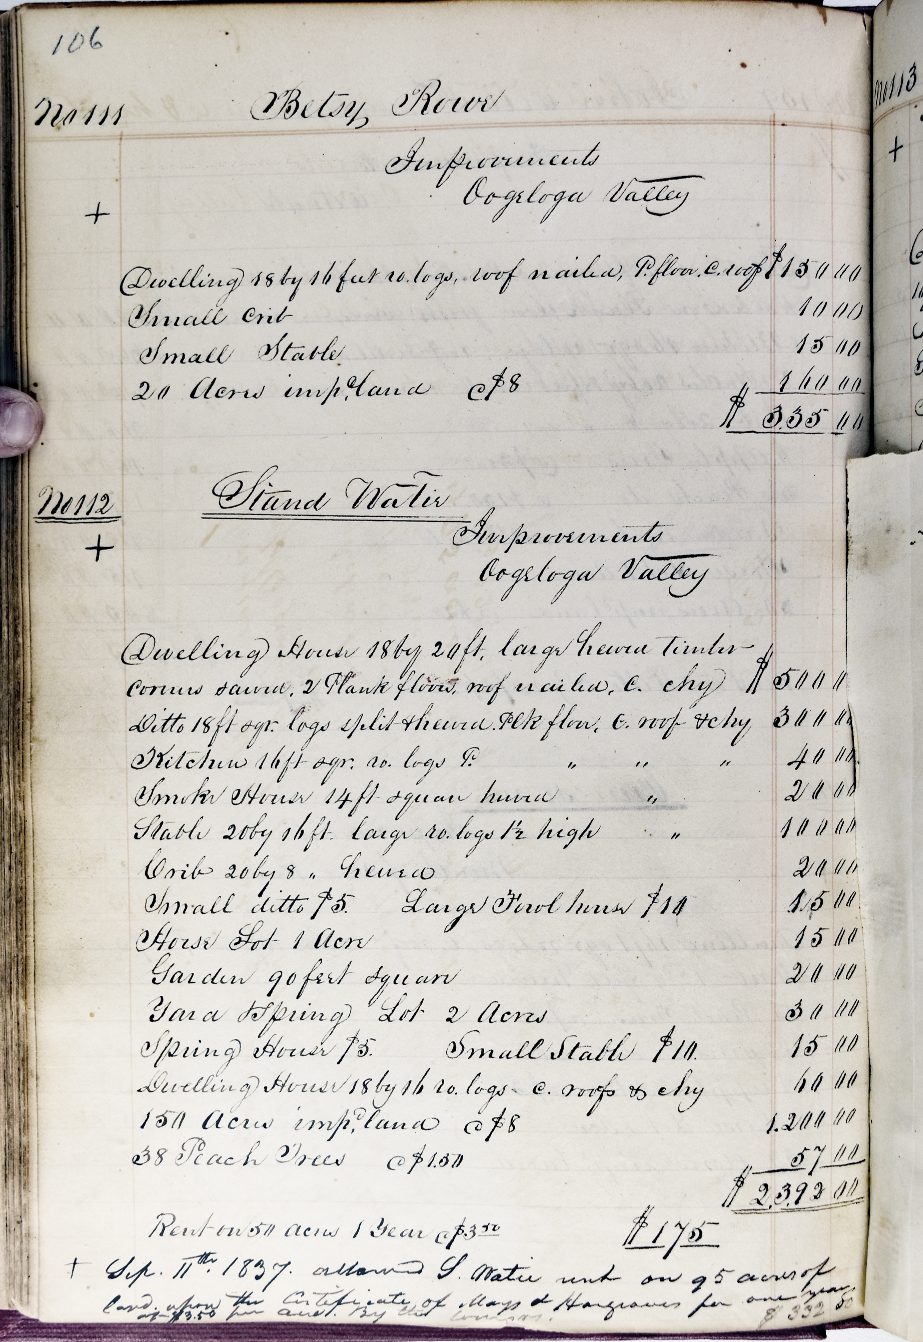 106
No 111 Betsy Rowe
Improvements
Oogeloga Valley
+
Dwelling 18 by 16 feet ro. logs, roof nailed, P. floor. C. roof $ 150 00
Small Crib 10 00
Small Stable 15 00
20 Acres imp.d land @ $8 160 00
$ 335 00
No 112 Stand Watie
Improvements
Oogeloga Valley
+
Dwelling House 18 by 20 ft, large hewed timber
corners sawed, 2 Plank floors, roof nailed, C. chy $ 500 00
Ditto 18 ft sqr. logs split & hewed. Plk floor, C. roof & chy 300 00
Kitchen 16 ft sqr. ro. logs P. " " " 40 00
Smoke House 14 ft square hewed " 20 00
Stable 20 by 16 ft. large ro. logs 1½ high " 100 00
Crib 20 by 8 " hewed 20 00
Small ditto $5. Large Fowl house $10 15 00
Horse Lot 1 Acre 15 00
Garden 90 feet square 20 00
Yard & Spring Lot 2 Acres 30 00
Spring House $5. Small Stable $10. 15 00
Dwelling House 18 by 16 ro. logs - C. roof & chy 60 00
150 Acres imp.d land @ $8 1.200 00
38 Peach Trees @ $1.50 57 00
$ 2.392 00
Rent on 50 acres 1 Year @ $3 50 $ 175
+ Sep. 11th 1837. allowed S. Watie rent on 95 acres of
land, upon the Certificate of Mays & Hargraves for one year
at $3.50 per acre. By the $ 332 50
No 113
+